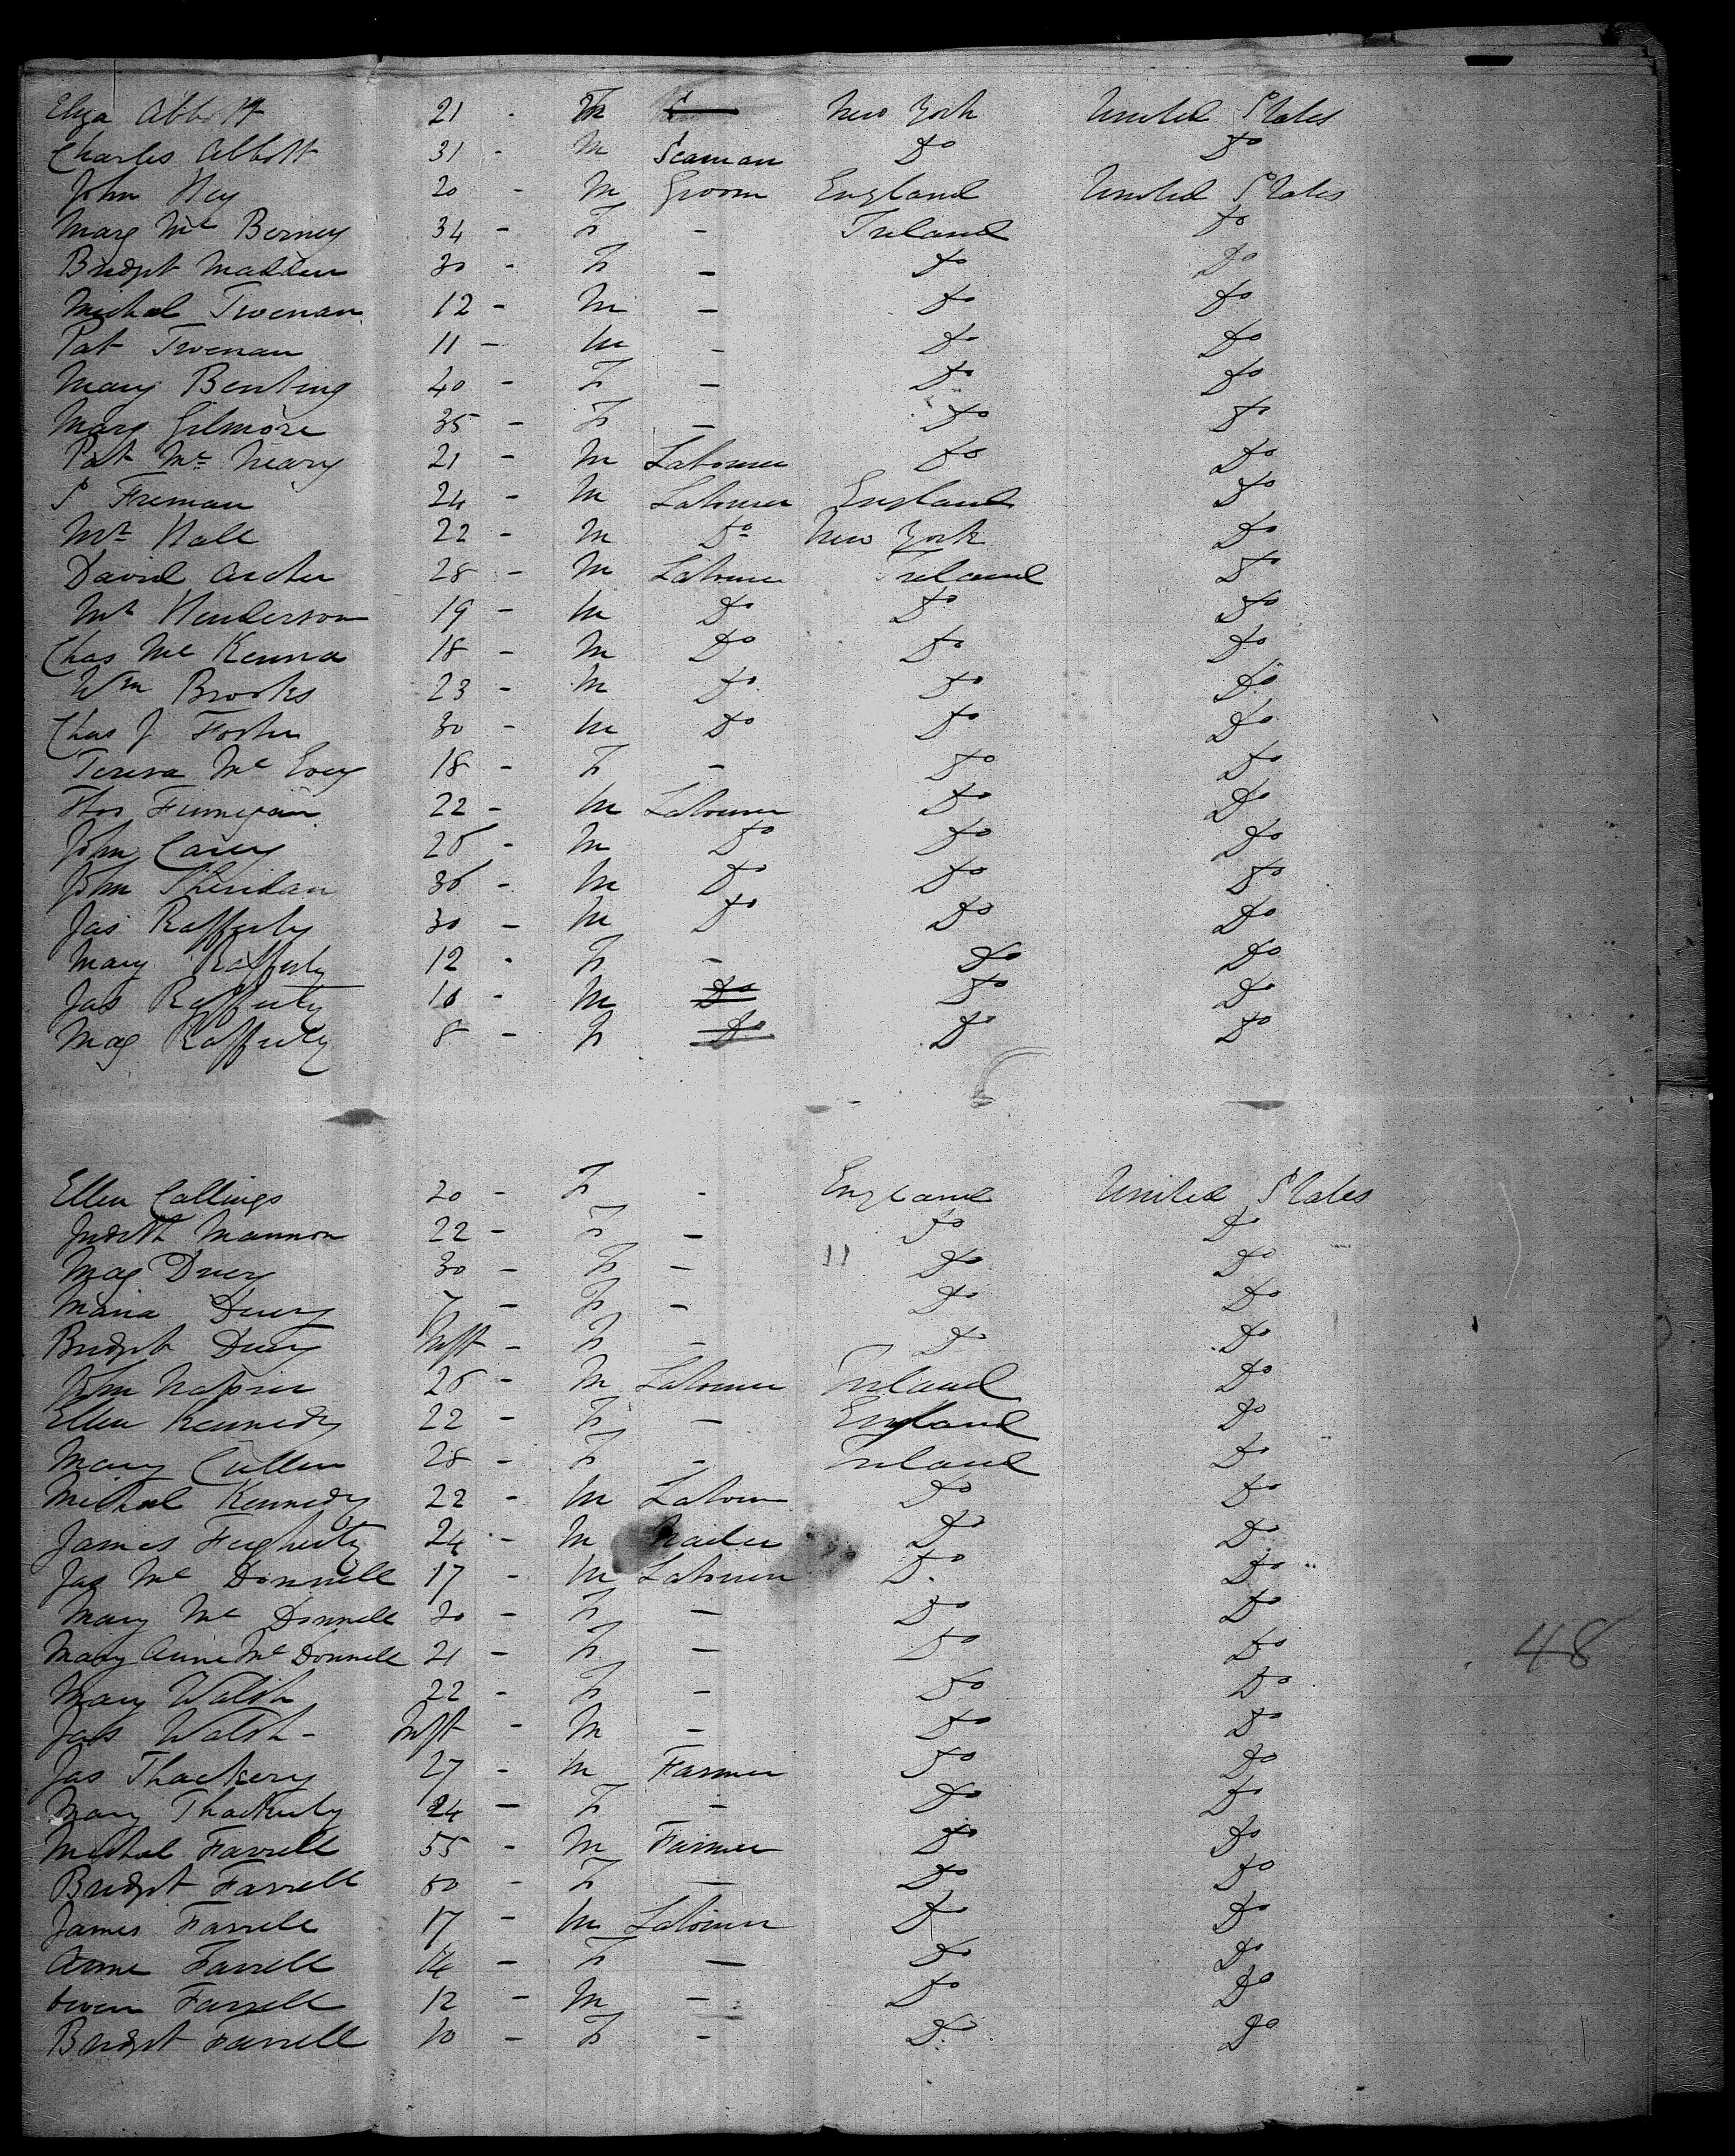 Eliza Abbott 21 - F New York United States
Charles Abbott 31 - M Seaman Do Do
John Hey 20 - M Groom England United States
Marg Mc Berney 34 - F - Ireland Do
Bridgt Madden 30 - F - Do Do
Michal Twenan 12 - M - Do Do
Pat Twenan 11 - M - Do Do
Mary Benting 40 - F - Do Do
Marg Gilmore 35 - F - Do Do
Pat Mc Neary 21 - M Labourer Do Do
S Freman 24 - M Labourer England Do
Mr Hall 22 - M Do New York Do
David Archer 28 - M Labourer Ireland Do
Mr Henderson 19 - M Do Do Do
Chas Mc Kenna 18 - M Do Do Do
Wm Brooks 23 - M Do Do Do
Chas J Foster 30 - M Do Do Do
Teresa Mc Evey 18 - F - Do Do
Thos Finnegan 22 - M Labourer Do Do
John Carey 26 - M Do Do Do
John Sheridan 36 - M Do Do Do
Jas Rafferty 30 - M Do Do Do
Mary Rafferty 12 - F - Do Do
Jas Rafferty 10 - M Do Do Do
Mag Rafferty 8 - F Do Do Do
Ellen Collings 20 - F - England United States
Judith Mannon 22 - F - Do Do
Mag Duery 30 - F - Do Do
Maria Duery 7 - F - Do Do
Bridgt Duery Inft - F - Do Do
John Napier 26 - M Labourer Ireland Do
Ellen Kennedy 22 - F - England Do
Mary Cullen 28 - F - Ireland Do
Michal Kennedy 22 - M Labour Do Do
James Fegherty 24 - M Nailer Do Do
Jas Mc Donnell 17 - M Labourer Do Do
Mary Mc Donnell 20 - F - Do Do
Mary Anne Mc Donnell 21 - F - Do Do
Mary Walsh 22 - F - Do Do
Jas Walsh - Inft - M - Do Do
Jas Thackery 27 - M Farmer Do Do
Mary Thackerly 24 - F - Do Do
Michal Farrell 55 - M Farmer Do Do
Bridgt Farrell 50 - F - Do Do
James Farrell 17 - M Labourer Do Do
Anne Farrell 14 - F - Do Do
Owen Farrell 12 - M - Do Do
Bridgt Farrell 10 - F - Do Do
48